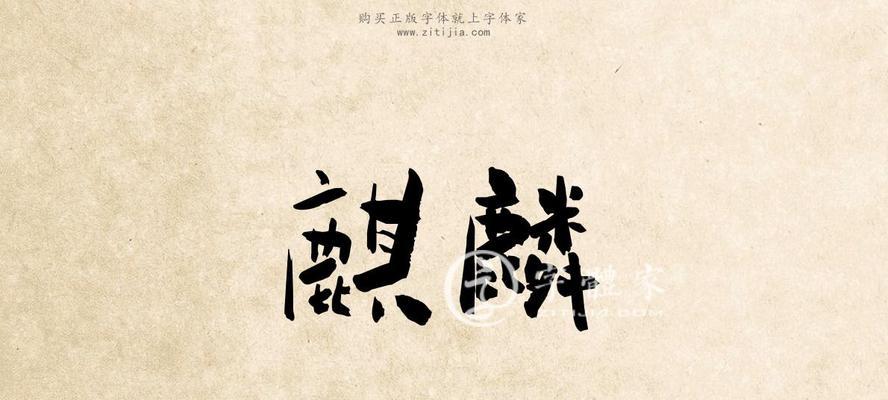 购买正版字体就上字体家
www.zitijia.com
麒麟
字體家
ZITIJIA.COM